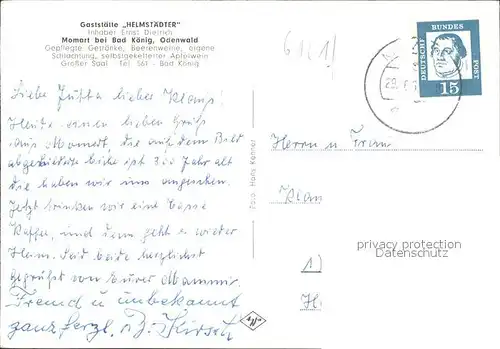 Gaststätte „HELMSTÄDTER"
Inhaber Ernst Dietrich
Momart bei Bad König, Odenwald
Gepflegte Getränke, Beerenweine, eigene
Schlachtung, selbstgekelterter Apfelwein
Großer Saal Tel. 561 - Bad König
DEUTSCHE BUNDES POST
15
Liebe Jutta lieber Klaus!
Heute einen lieben Gruß
aus Momart, die auf dem Bild
abgebildete Eiche ist 300 Jahr alt
die haben wir uns angesehen.
Jetzt trinken wir eine Tasse
Kaffee, und dann geht's wieder
Heim. Seid beide herzlichst
gegrüßt von Eurer Mammi.
Fremd u. unbekannt
ganz herzl.
Foto: Hans Kenner
Herrn u. Frau
Klau
privacy protection
Datenschutz
1)